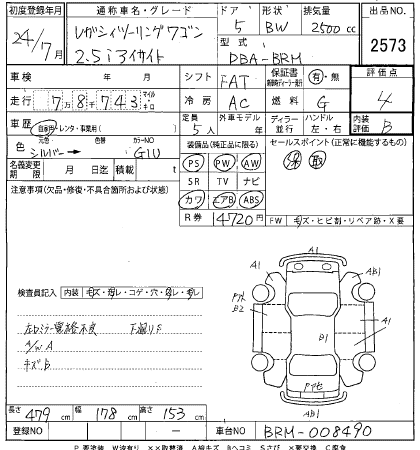 初度登録年月 通称車名・グレード ドア 形状 排気量 出品NO.
24/7月 レガシィツーリングワゴン 2.5iアイサイト 5 BW 2500cc 2573
型式 DBA-BRM
車検 年 月 シフト FAT 保証書 有・無 評価点
走行 7万8千743 マイル キロ 冷房 AC 燃料 G 4
車歴 自家用・レンタ・事業用( ) 定員 5人 外車モデル 年 ディーラー 並行 ハンドル 左・右 内装評価 B
色 元色 シルバー 色替 カラーNO G1U 装備品(純正品に限る) セールスポイント(正常に機能するもの)
PS PW AW 保 取
名義変更期限 月 日迄 積載 t SR TV ナビ
注意事項(欠品・修復・不具合箇所および状態) カワ エアB ABS
R券 14720円 FW キズ・ヒビ割・リペア跡・X要
A1
A1 AB1
検査員記入 内装 キズ・切レ・コゲ・穴
B2 A1
左ドアミラー 下廻りサ
A/W A
キズB
A1 AB1
B1
長さ 479cm 幅 178cm 高さ 153cm
登録NO － 車台NO BRM-008490
P要塗装 W波有り XX取替済 A線キズ Bヘコミ Sさび X要交換 C腐食